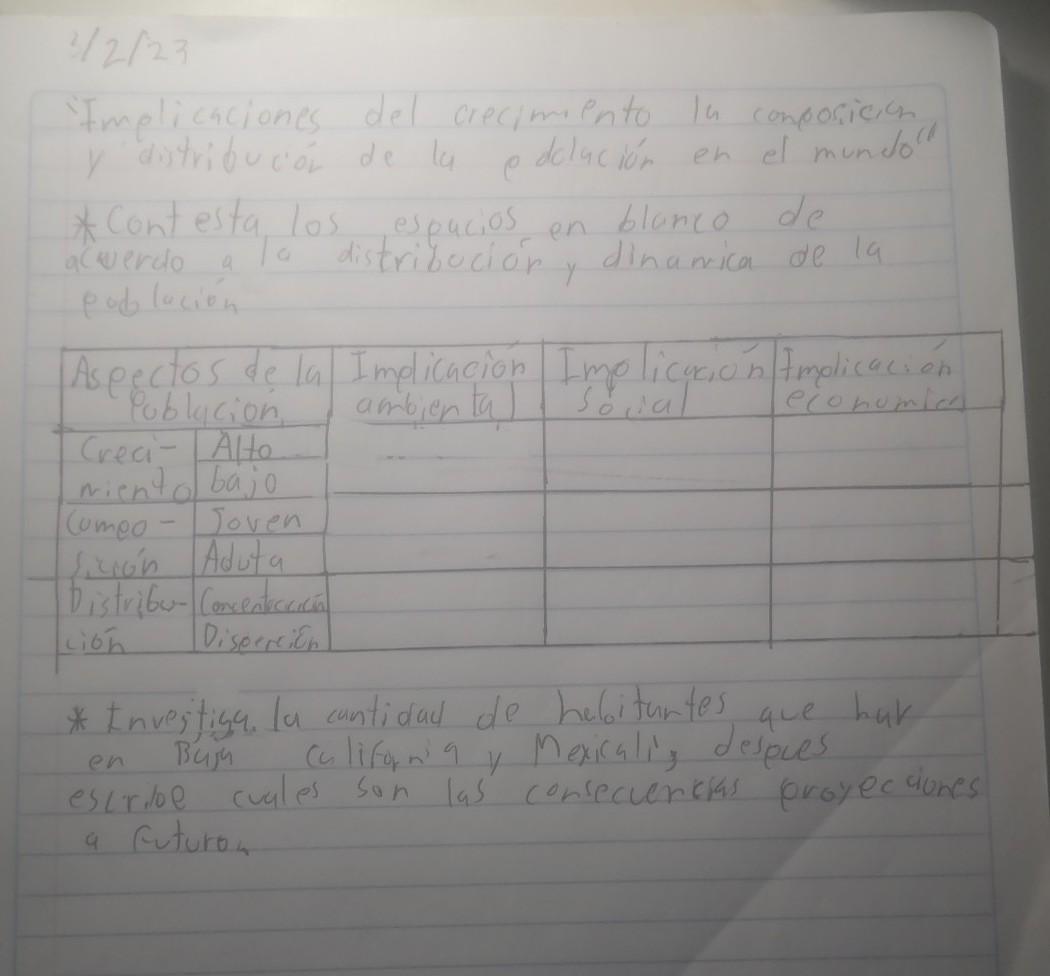 1/2/23
"Implicaciones del crecimiento la composicion
y distribución de la población en el mundo"
* Contesta los espacios en blanco de
acuerdo a la distribución y dinamica de la
poblacion
Aspectos de la Implicación Implicación Implicación
Población ambiental social economica
Creci- Alto
miento bajo
Compo- Joven
sición Aduta
Distribu- Concentración
ción Disperción
* Investiga la cantidad de habitantes que hay
en Baja California y Mexicali, despues
escribe cuales son las consecuencias proyecciones
a futuro.